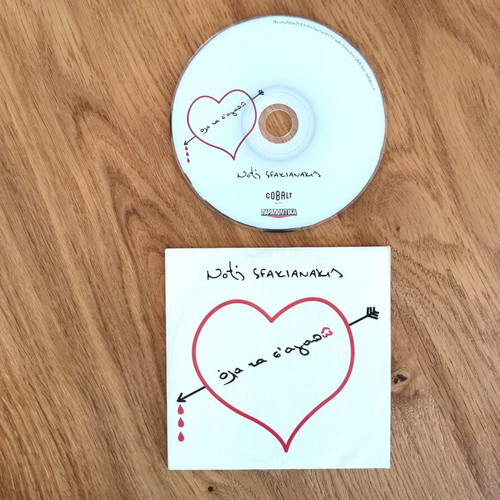 όλα τα σ'αγαπώ
Notis SFAKIANAKIS
COBALT
ΠΑΡΑΠΟΛΙΤΙΚΑ
Notis SFAKIANAKIS
όλα τα σ'αγαπώ